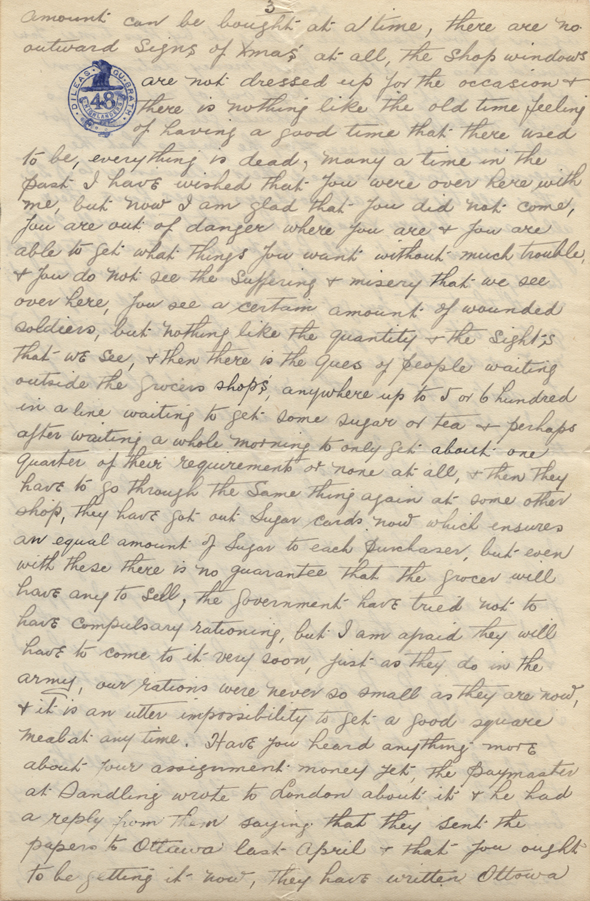 3
amount can be bought at a time, there are no
outward signs of Xmas at all, the shop windows
are not dressed up for the occasion +
there is nothing like the old time feeling
of having a good time that there used
DILEAS GU BRATH
48
HIGHLANDERS
to be, everything is dead, many a time in the
past I have wished that you were over here with
me, but now I am glad that you did not come,
you are out of danger where you are + you are
able to get what things you want without much trouble,
+ you do not see the suffering + misery that we see
over here, you see a certain amount of wounded
soldiers, but nothing like the quantity + the sights
that we see, + then there is the ques of people waiting
outside the grocers shops, anywhere up to 5 or 6 hundred
in a line waiting to get some sugar or tea + perhaps
after waiting a whole morning to only get about one
quarter of their requirements or none at all, + then they
have to go through the same thing again at some other
shop, they have got out sugar cards now which ensures
an equal amount of sugar to each purchaser, but even
with these there is no guarantee that the grocer will
have any to sell, the government have tried not to
have compulsary rationing, but I am afraid they will
have to come to it very soon, just as they do in the
army, our rations were never so small as they are now,
+ it is an utter impossibility to get a good square
meal at any time. Have you heard anything more
about your assignment money yet, the paymaster
at Sandling wrote to London about it + he had
a reply from them saying that they sent the
papers to Ottawa last April + that you ought
to be getting it now, they have written Ottowa